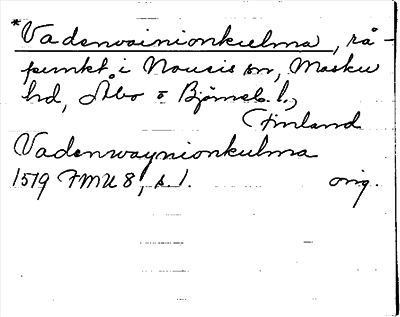 *Vadenvainionkulma, rå-
punkt i Nousis sn, Masku
hd, Åbo o Björneb. l.,
Finland
Vadenwaynionkulma
1519 FMU 8, s. 1. orig.